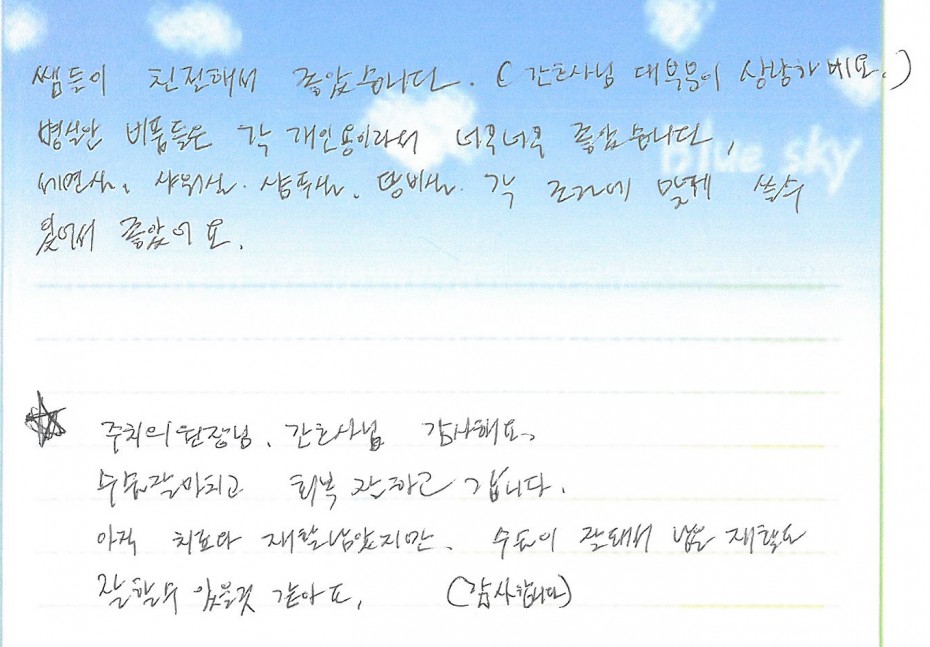 쌤들이 친절해서 좋았습니다. (간호사님 대부분이 상냥하네요.)
병실안 비품들은 각 개인용이라서 너무너무 좋았습니다.
blue sky
세면실, 샤워실. 샴푸실, 탕비실. 각 맞게 쓸수
있어서 좋았어요.
주치의원장님, 간호사님 감사해요.
수술잘마치고 회복 잘하고 갑니다.
아직 치료와 재활남았지만, 수술이 잘돼서 남은 재활도
잘할수 있을것 같아요. (감사합니다)